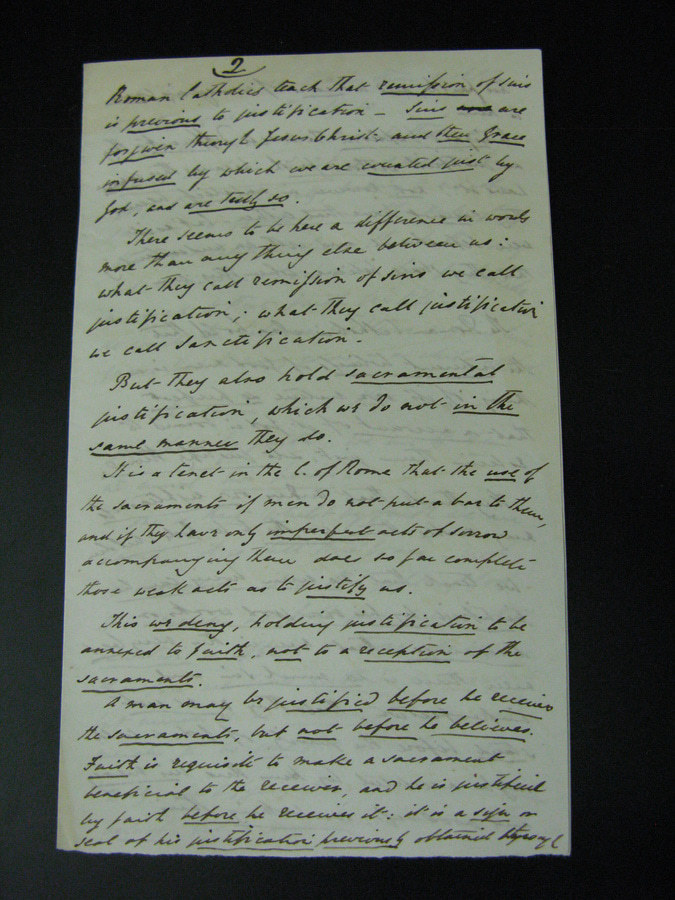 2
Roman Catholics teach that remission of sins
is previous to justification - Sins are are
forgiven through Jesus Christ, and then Grace
infused by which we are counted just by
God, and are truly so.
There seems to be here a difference in words
more than any thing else between us:
what they call remission of sins we call
justification; what they call justification
we call Sanctification -
But they also hold sacramental
justification, which we do not in the
same manner they do.
It is a tenet in the C. of Rome that the use of
the sacraments if men do not put a bar to them,
and if they have only imperfect acts of sorrow
accompanying them does so far complete
those weak acts as to justify us.
This we deny, holding justification to be
annexed to faith, not to a reception of the
sacraments.
A man may be justified before he receives
the sacraments, but not before he believes.
Faith is requisite to make a sacrament
beneficial to the receiver, and he is justified
by faith before he receives it: it is a sign or
seal of his justification previously obtained through